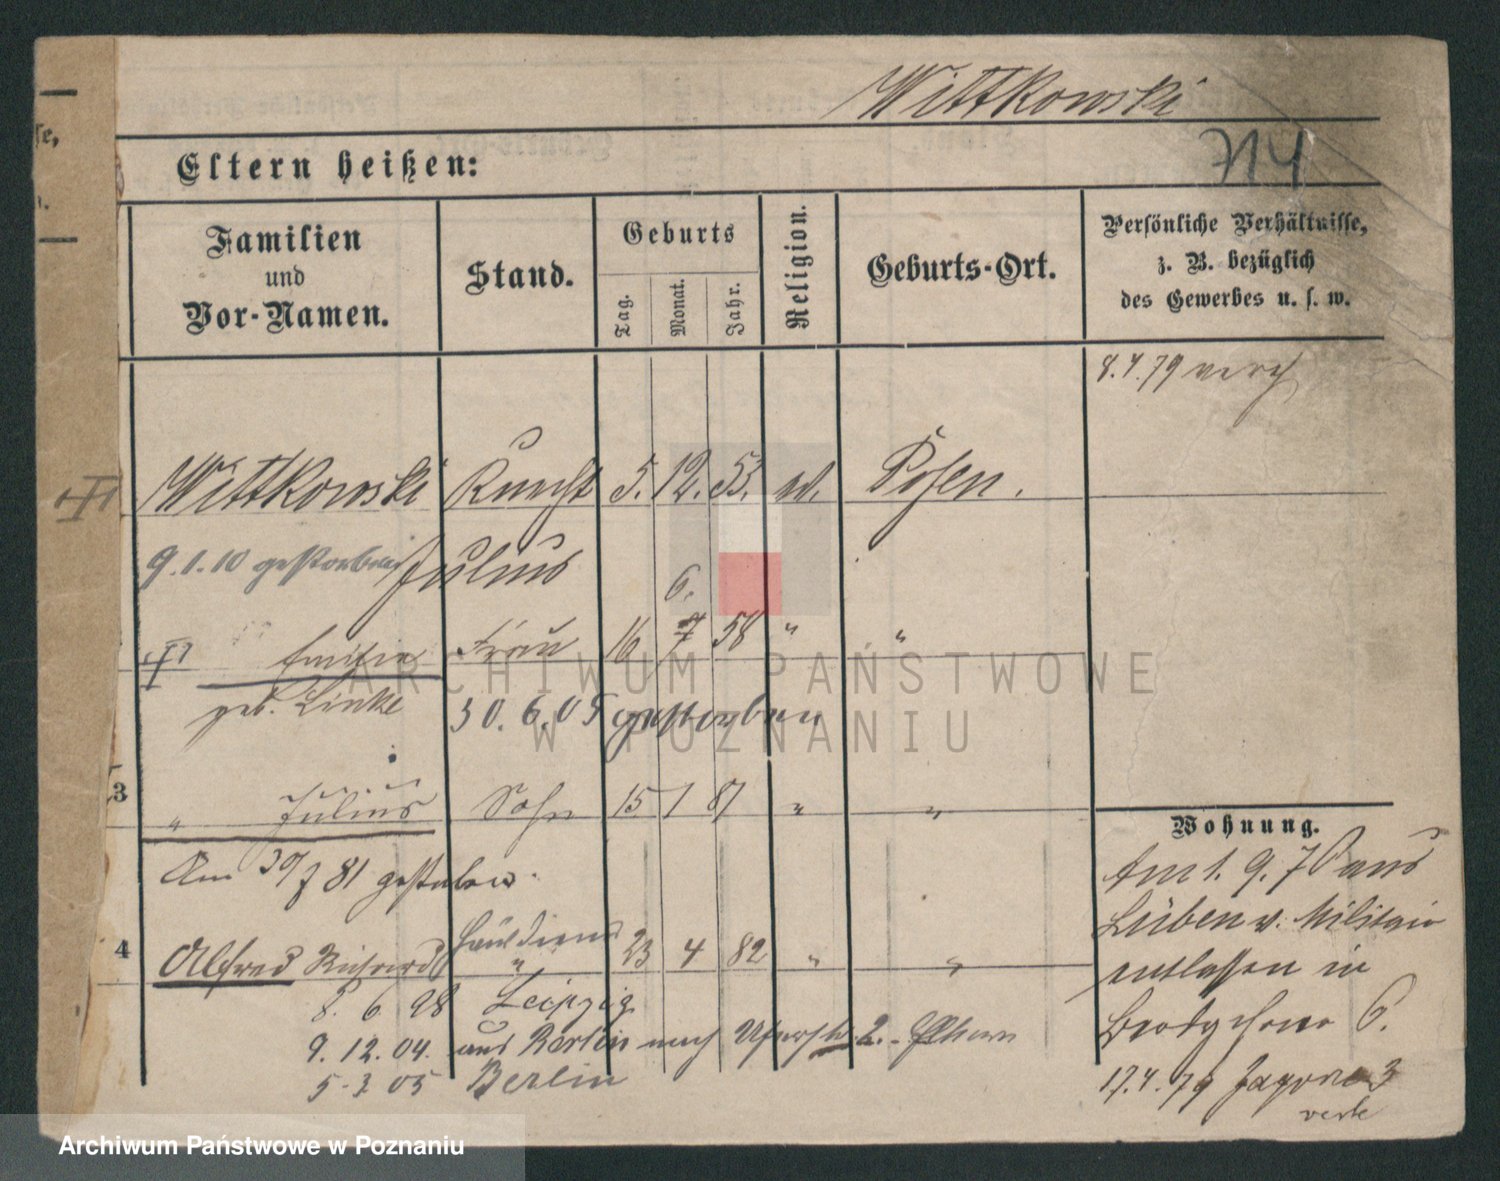 Wittkowski
714
Eltern heißen:
Familien und Vor-Namen.
Stand.
Geburts
Tag.
Monat.
Jahr.
Religion.
Geburts-Ort.
Persönliche Verhältnisse, z. B. bezüglich des Gewerbes u. s. w.
8.4.79 verh
Wittkowski 5. 12. 53. Posen.
9.1.10 gestorben Julius
6.
Emilie Frau 16 7 58 " "
geb. Linke 30.6.05 gestorben
3 " Julius Sohn 15 1 81 " "
Am 30/7 81 gestorben.
4 Alfred Richard " 23 4 82 " "
8. 6. 98 Leipzig
9. 12. 04. aus Berlin nach 2.
5. 3. 05 Berlin
Wohnung.
Am 1. 9. 78 aus
Lüben v. Militair
entlassen in
6.
17.4.79 3
ARCHIWUM PAŃSTWOWE
W POZNANIU
Archiwum Państwowe w Poznaniu